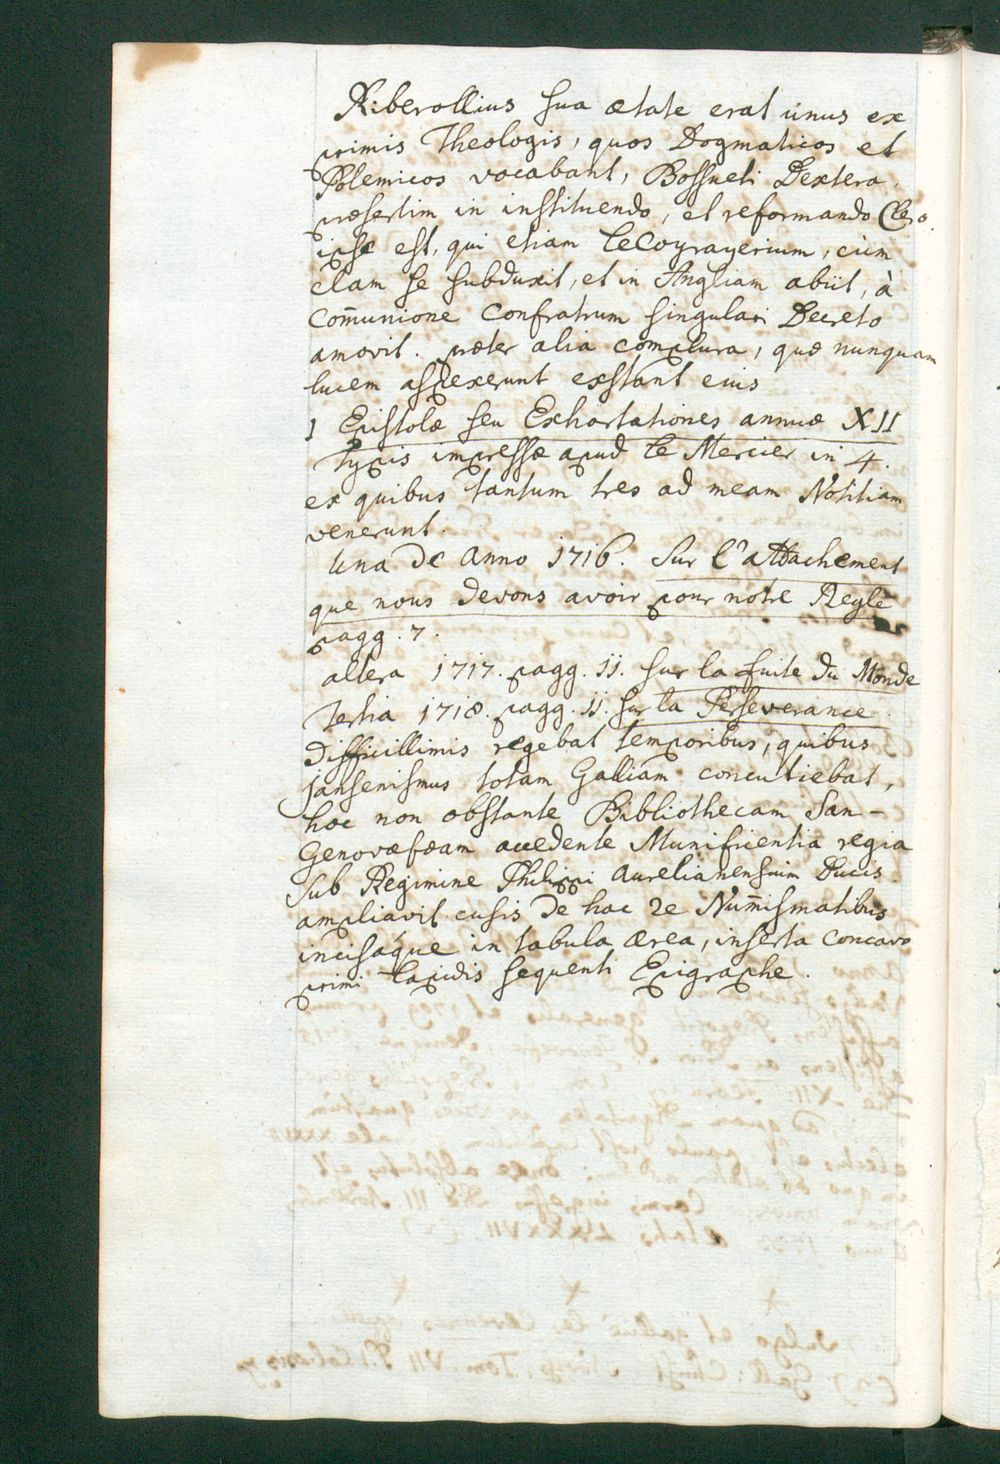 Riberollius sua ætate erat unus ex
primis Theologis, quos Dogmaticos et
Polemicos vocabant, Bossueti Dextera,
præsertim in instituendo, et reformando Clero.
ipse est, qui etiam leCoyrayerium, cùm
clam se subduxit, et in Angliam abiit, à
Com̄unione Confratrum singulari Decreto
amovit. præter alia complura, quæ nunquam
lucem aspexerunt exstant eius
1 Epistolæ seu Exhortationes annuæ XII
typis impressæ apud le Mercier in 4.
ex quibus tantum tres ad meam Notitiam
venerunt.
Una de Anno 1716. Sur l'attachement
que nous devons avoir pour notre Regle
pagg. 7.
altera 1717. pagg. 11. sur la fuite du Monde
Tertia 1718. pagg. 11. sur la Perseverance
Difficillimis regebat temporibus, quibus
Jansenismus totam Galliam concutiebat,
hoc non obstante Bibliothecam San-
Genovæfæam accedente Munificentia regia
sub Regimine Philippi Aurelianensium Ducis
ampliavit cusis de hac re Num̄ismatibus
incisáque in tabula ærea, inserta concavo
primi Lapidis sequenti Epigraphe.